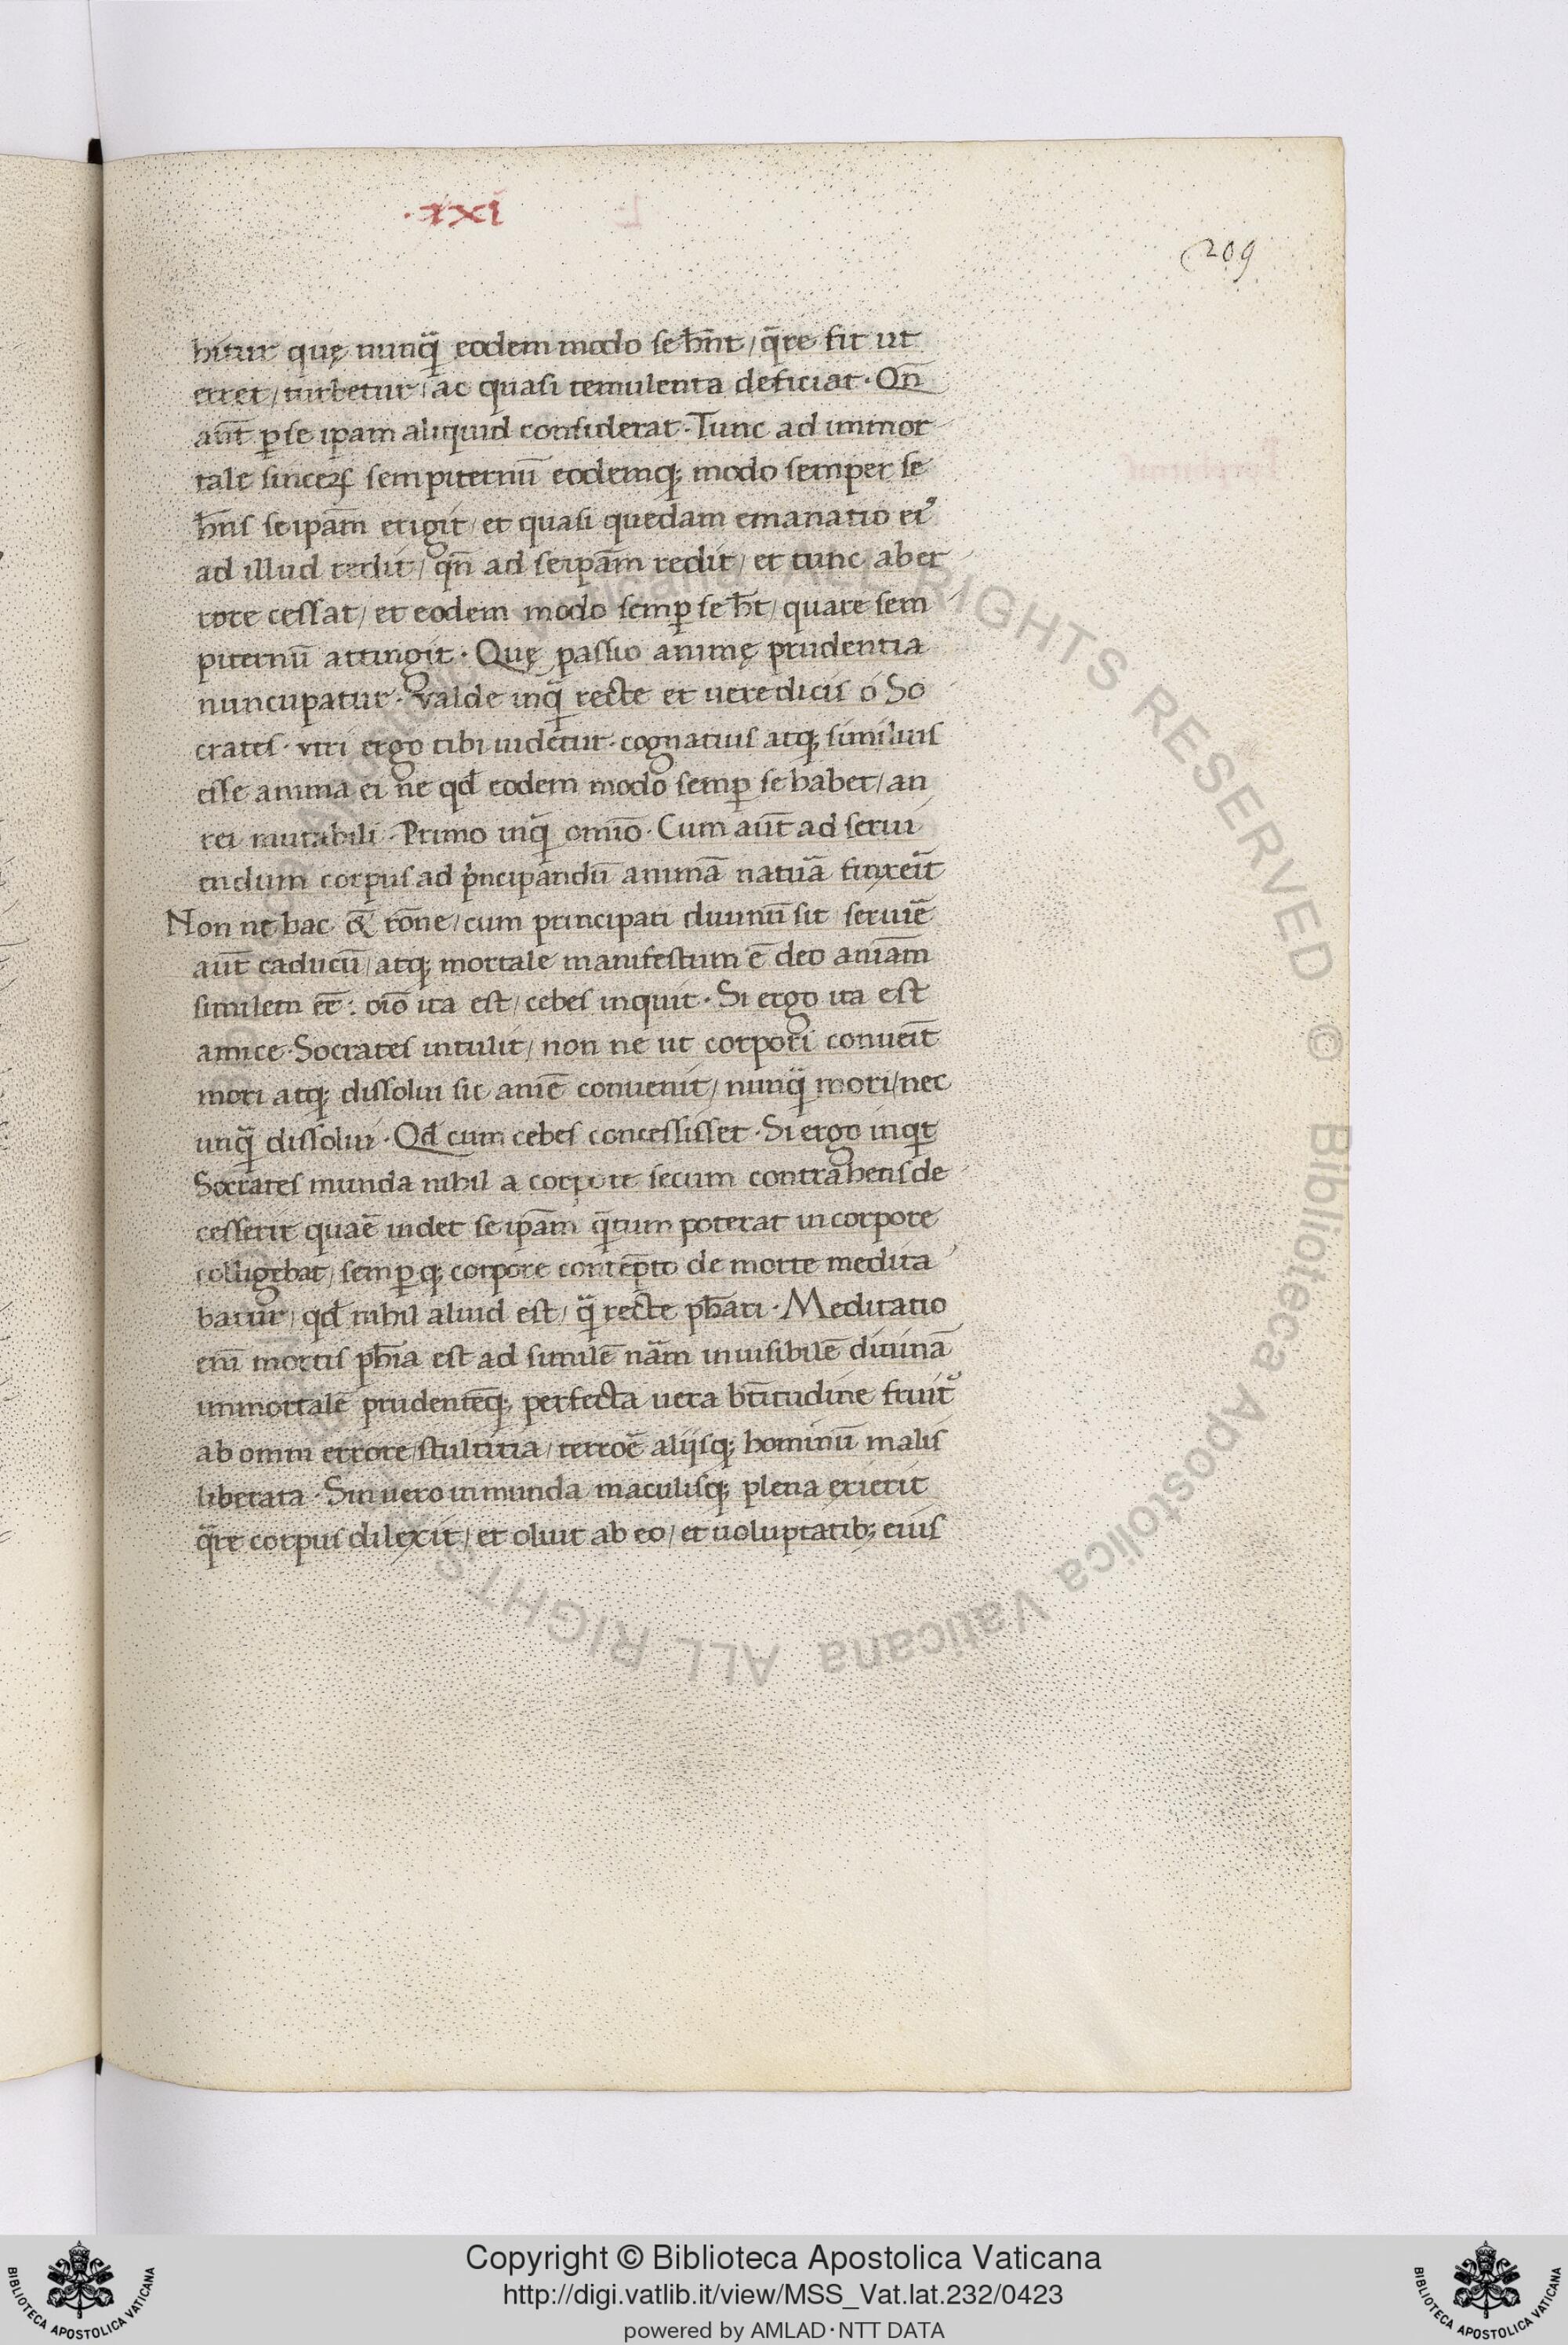 ·xxi
209
bitur quę nunq̃ eodem modo se hñt / q̃re fit ut
erret / turbetur / ac quasi temulenta deficiat · Qñ
aut̃ ꝑ se ip̃am aliquid considerat · Tunc ad immor
tale sinceꝝ sempiternũ eodemq; modo semper se
hñs seipãm erigit / et quasi quedam emanatio eiꝰ
ad illud redit / qñ ad seipãm redit / et tunc ab er
rore cessat / et eodem modo semꝑ se ht̃ / quare sem
piternũ attingit · Quę passio animę prudentia
nuncupatur · valde inq̃ recte et uere dicis o So
crates · vtri ergo tibi uidetur · cognatius atq; similius
esse anima ei ne qđ eodem modo semꝑ se habet / an
rei mutabili · Primo inq̃ omĩo · Cum aut̃ ad serui
endum corpus ad p̃ncipandũ animã natũa finxeĩt
Non ne hac & rõne / cum principari diuinũ sit seruiẽ
aut̃ caducũ / atq; mortale manifestum ẽ deo aniãm
similem eẽ : oĩo ita est / cebes inquit · Si ergo ita est
amice · Socrates intulit / non ne ut corpori conueĩt
mori atq; dissolui sic anĩę conuenit / nunq̃ mori / nec
unq̃ dissolui · Qđ cum cebes concessisset · Si ergo inqt
Socrates munda nihil a corpore secum contrahens de
cesserit quaẽ uidet se ip̃am q̃tum poterat in corpore
colligebat / semꝑq; corpore contẽpto de morte medita
batur / qđ nihil aliud est / q̃ recte ph̃ari · Meditatio
enĩ mortis ph̃ia est ad similẽ nãm inuisibilẽ diuinã
immortalẽ prudentẽq; perfecta uera bt̃itudine fruit᷑
ab omni errore / stultitia / terroẽ aliisq; hominũ malis
liberata · Sin uero inmunda maculisq; plena exierit
q̃re corpus dilexit / et oluit ab eo / et uoluptatib; eius
Copyright © Biblioteca Apostolica Vaticana
http://digi.vatlib.it/view/MSS_Vat.lat.232/0423
powered by AMLAD·NTT DATA